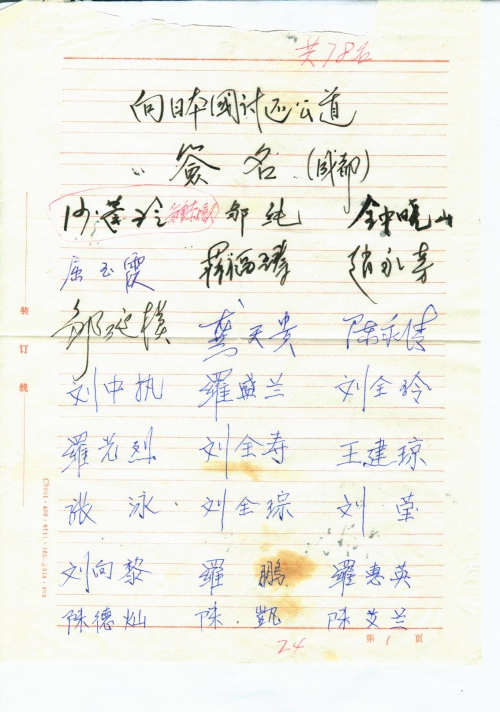 共78名
向日本國讨还公道
簽名(成都)
沙黄玲 邹纯 钟晓山
屈玉霞 蒋福璋 赵永芳
邹延模 龚天贵 陈永倩
刘中执 羅盛兰 刘全玲
羅光烈 刘全寿 王建琼
张泳 刘全琮 刘莹
刘向黎 羅鹏 羅惠英
陈德灿 陈凯 陈艾兰
装订线
24
第1页